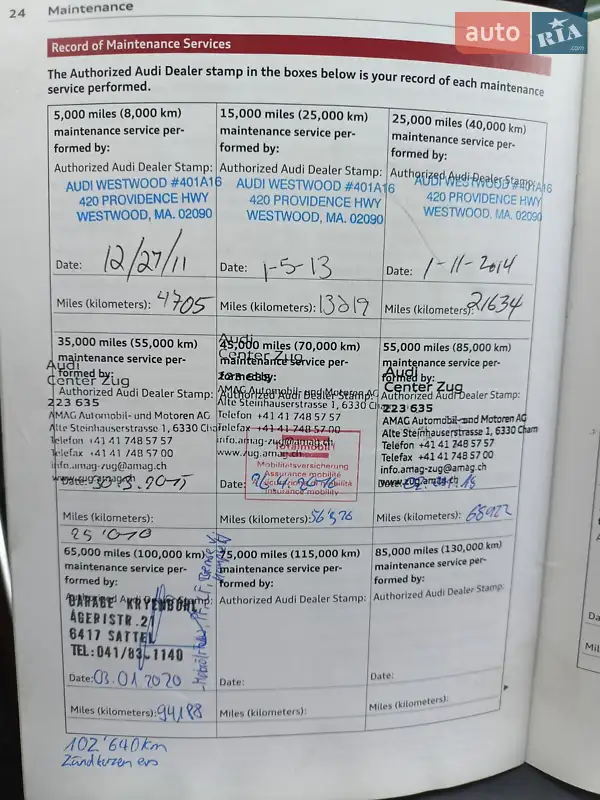 24 Maintenance
auto RIA .com
Record of Maintenance Services
The Authorized Audi Dealer stamp in the boxes below is your record of each maintenance
service performed.
5,000 miles (8,000 km)
maintenance service per-
formed by:
Authorized Audi Dealer Stamp:
AUDI WESTWOOD #401A16
420 PROVIDENCE HWY
WESTWOOD, MA. 02090
Date: 12/27/11
Miles (kilometers): 4705
15,000 miles (25,000 km)
maintenance service per-
formed by:
Authorized Audi Dealer Stamp:
AUDI WESTWOOD #401A16
420 PROVIDENCE HWY
WESTWOOD, MA. 02090
Date: 1-5-13
Miles (kilometers): 13819
25,000 miles (40,000 km)
maintenance service per-
formed by:
Authorized Audi Dealer Stamp:
AUDI WESTWOOD #401A16
420 PROVIDENCE HWY
WESTWOOD, MA. 02090
Date: 1-11-2014
Miles (kilometers): 21634
35,000 miles (55,000 km)
maintenance service per-
formed by:
Audi
Center Zug
Authorized Audi Dealer Stamp:
223 635
AMAG Automobil- und Motoren AG
Alte Steinhauserstrasse 1, 6330 Cham
Telefon +41 41 748 57 57
Telefax +41 41 748 57 00
info.amag-zug@amag.ch
www.zug.amag.ch
Date: 30.3.2015
Miles (kilometers):
25'010
45,000 miles (70,000 km)
maintenance service per-
formed by:
Audi
Center Zug
223 635
Authorized Audi Dealer Stamp:
AMAG Automobil- und Motoren AG
Alte Steinhauserstrasse 1, 6330 Cham
Telefon +41 41 748 57 57
Telefax +41 41 748 57 00
info.amag-zug@amag.ch
www.zug.amag.ch
Totalmobil
Mobilitätsversicherung
Assurance mobilité
Assicurazione mobilità
Insurance mobility
Date: 26.4.2016
Miles (kilometers): 56'576
55,000 miles (85,000 km)
maintenance service per-
formed by:
Audi
Center Zug
Authorized Audi Dealer Stamp:
223 635
AMAG Automobil- und Motoren AG
Alte Steinhauserstrasse 1, 6330 Cham
Telefon +41 41 748 57 57
Telefax +41 41 748 57 00
info.amag-zug@amag.ch
www.zug.amag.ch
Date:
Miles (kilometers): 68922
65,000 miles (100,000 km)
maintenance service per-
formed by:
Authorized Audi Dealer Stamp:
GARAGE KRYENBÜHL
ÄGERISTR.21
6417 SATTEL
TEL:041/83 1140
Date: 03.01.2020
Miles (kilometers): 94188
75,000 miles (115,000 km)
maintenance service per-
formed by:
Authorized Audi Dealer Stamp:
Date:
Miles (kilometers):
85,000 miles (130,000 km)
maintenance service per-
formed by:
Authorized Audi Dealer Stamp:
Date:
Miles (kilometers):
102'640km
Zündkerzen ers
Da
Mil